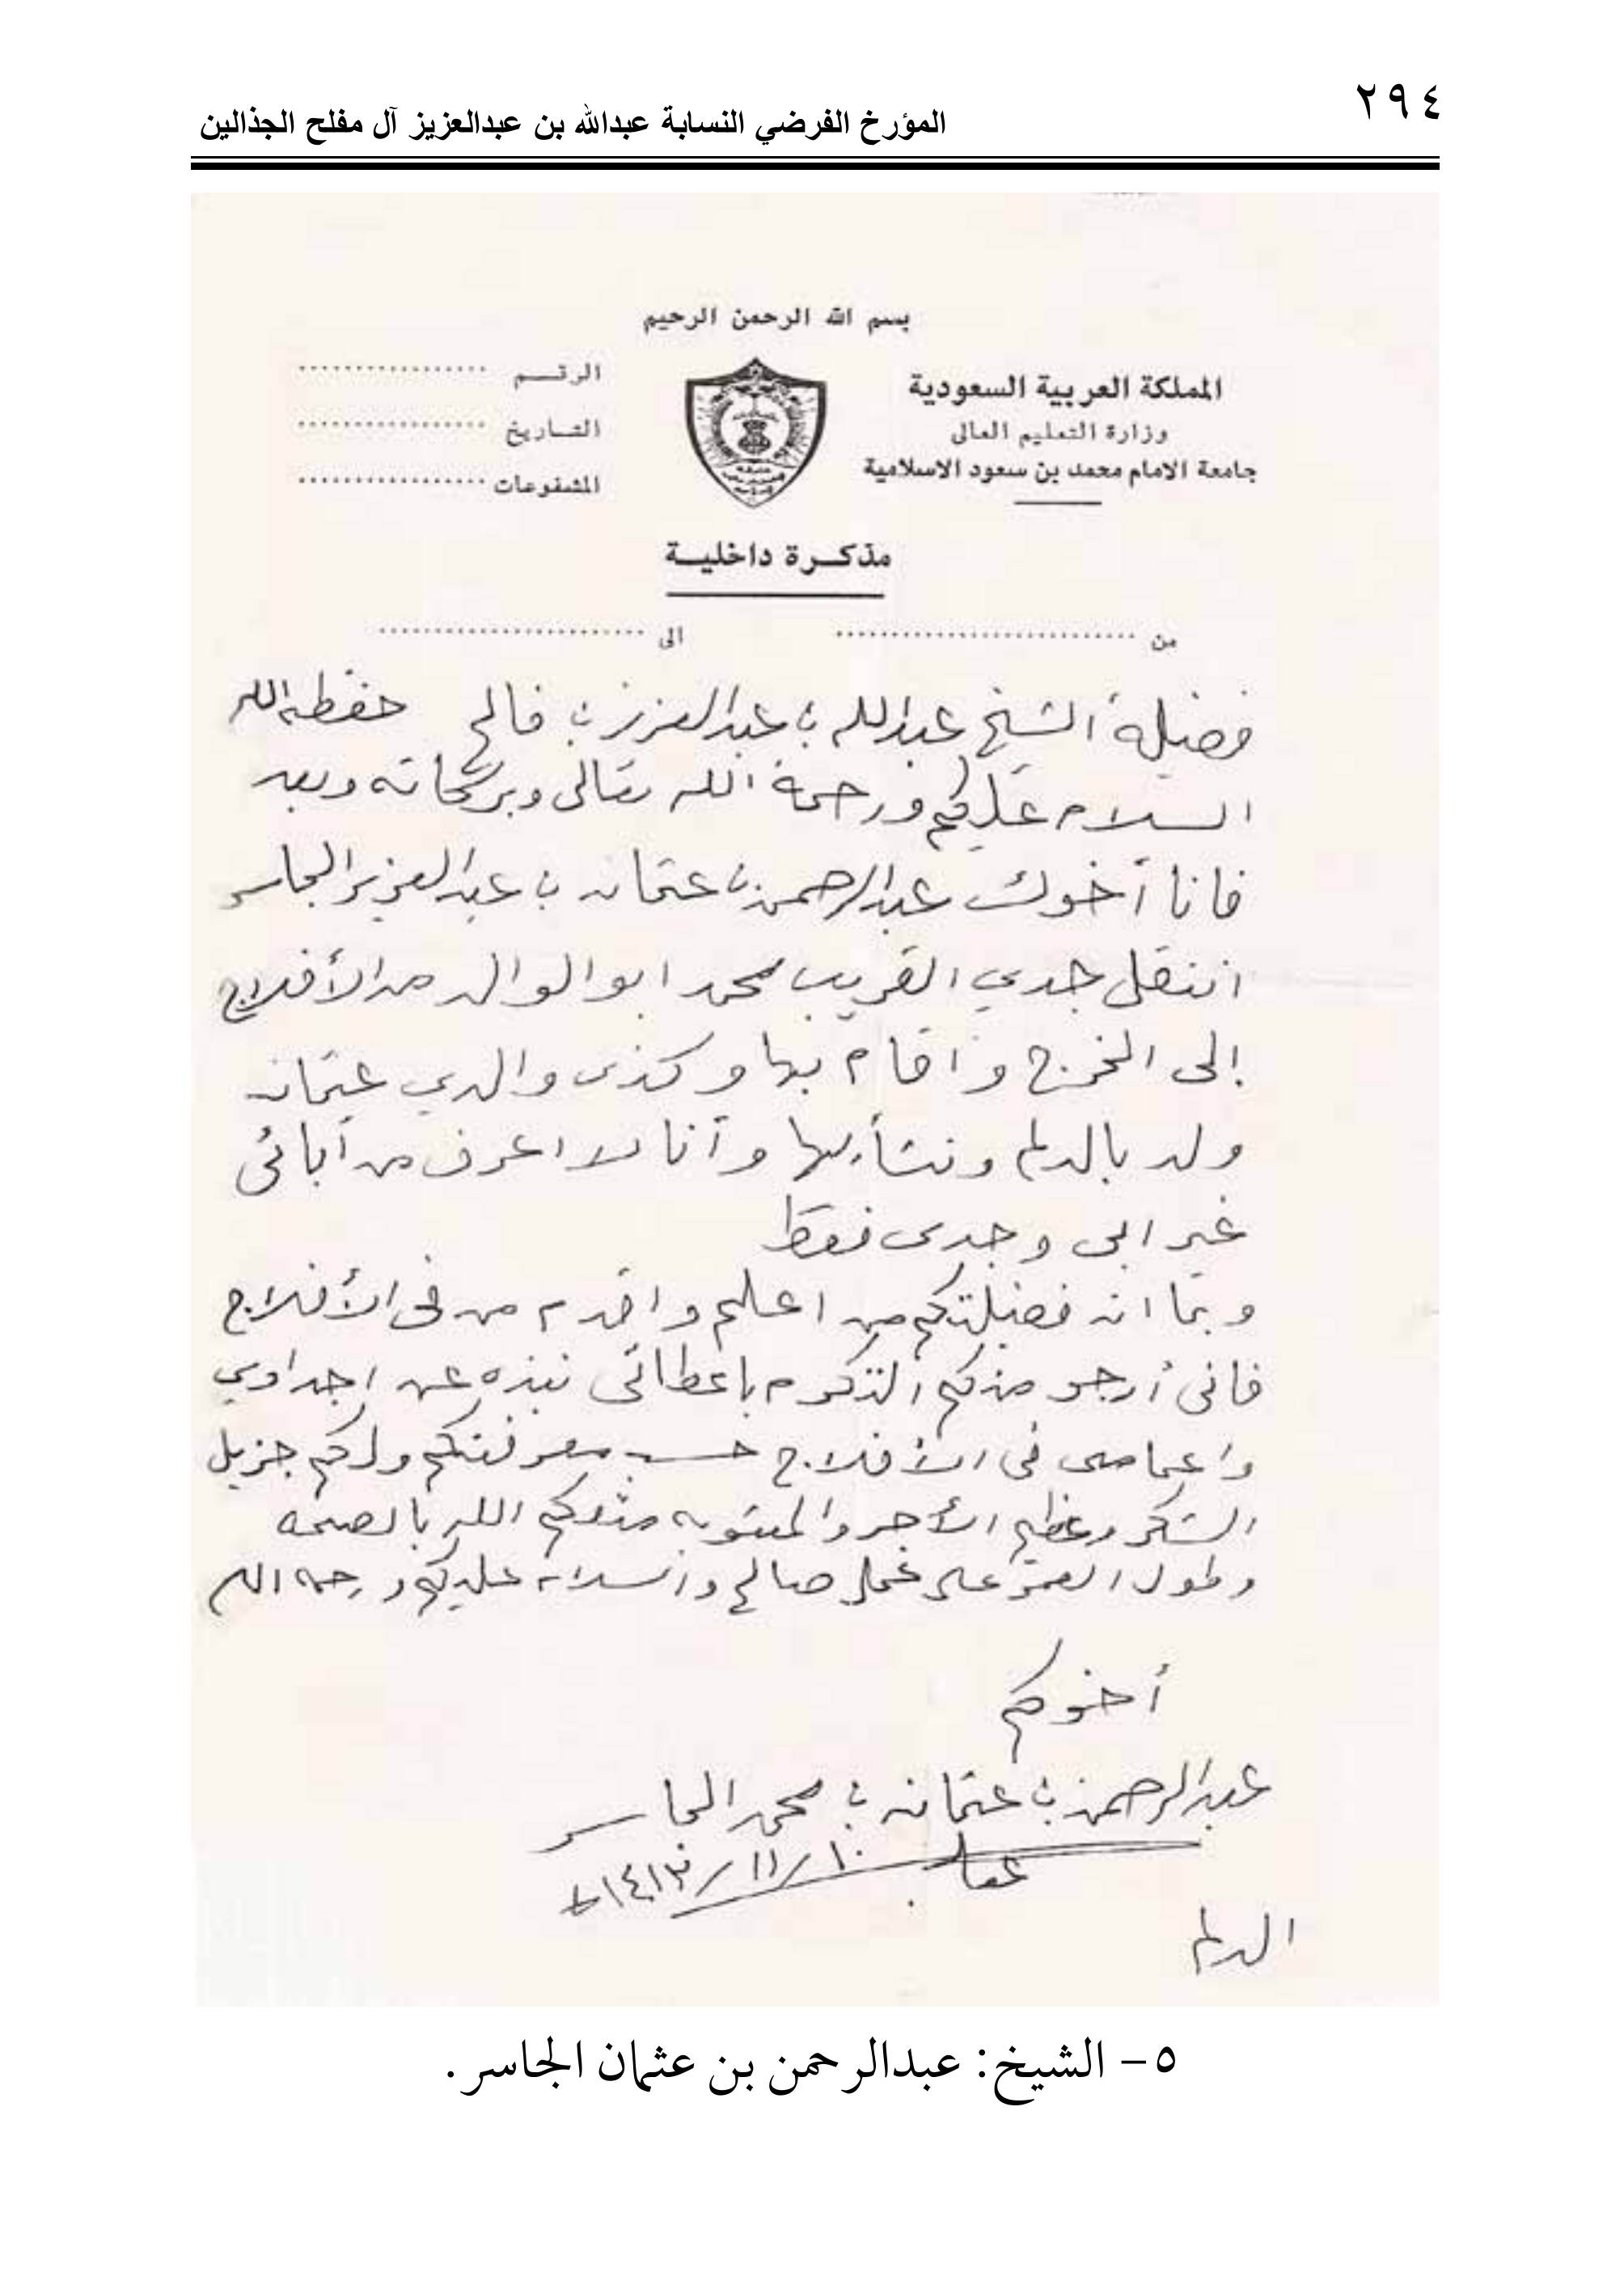 ٢٩٤
المؤرخ الفرضي النسابة عبدالله بن عبدالعزيز آل مفلح الجذالين
بسم الله الرحمن الرحيم
المملكة العربية السعودية
وزارة التعليم العالى
جامعة الامام محمد بن سعود الاسلامية
الرقــم
التـاريخ
المشفوعات
مذكـرة داخليـة
من
الى
فضيلة الشيخ عبدالله بن عبدالعزيز بن فالح حفظه الله
السلام عليكم ورحمة الله تعالى وبركاته وبعد
فانا أخوك عبدالرحمن بن عثمان بن عبدالعزيز الجاسر
انتقل جدي القريب محمد ابو الوالد من الأفلاج
إلى الخرج واقام بها وكذى والدي عثمان
ولد بالدلم ونشأ بها وأنا لا اعرف من أبائى
غير ابى وجدى فقط
وبما ان فضيلتكم من اعلم واقدم من فى الأفلاج
فانى أرجو منكم التكرم باعطائى نبذه عن اجدادي
واعمامى فى الأفلاج حسب معرفتكم ولكم جزيل
الشكر وعظيم الأجر والمثوبه الله بالصحه
وطول العمر على عمل صالح والسلام عليكم ورحمة الله
أخوكم
عبدالرحمن بن عثمان بن محمد الجاسر
١٠/١١/١٤١٣هـ
الدلم
٥- الشيخ: عبدالرحمن بن عثمان الجاسر.